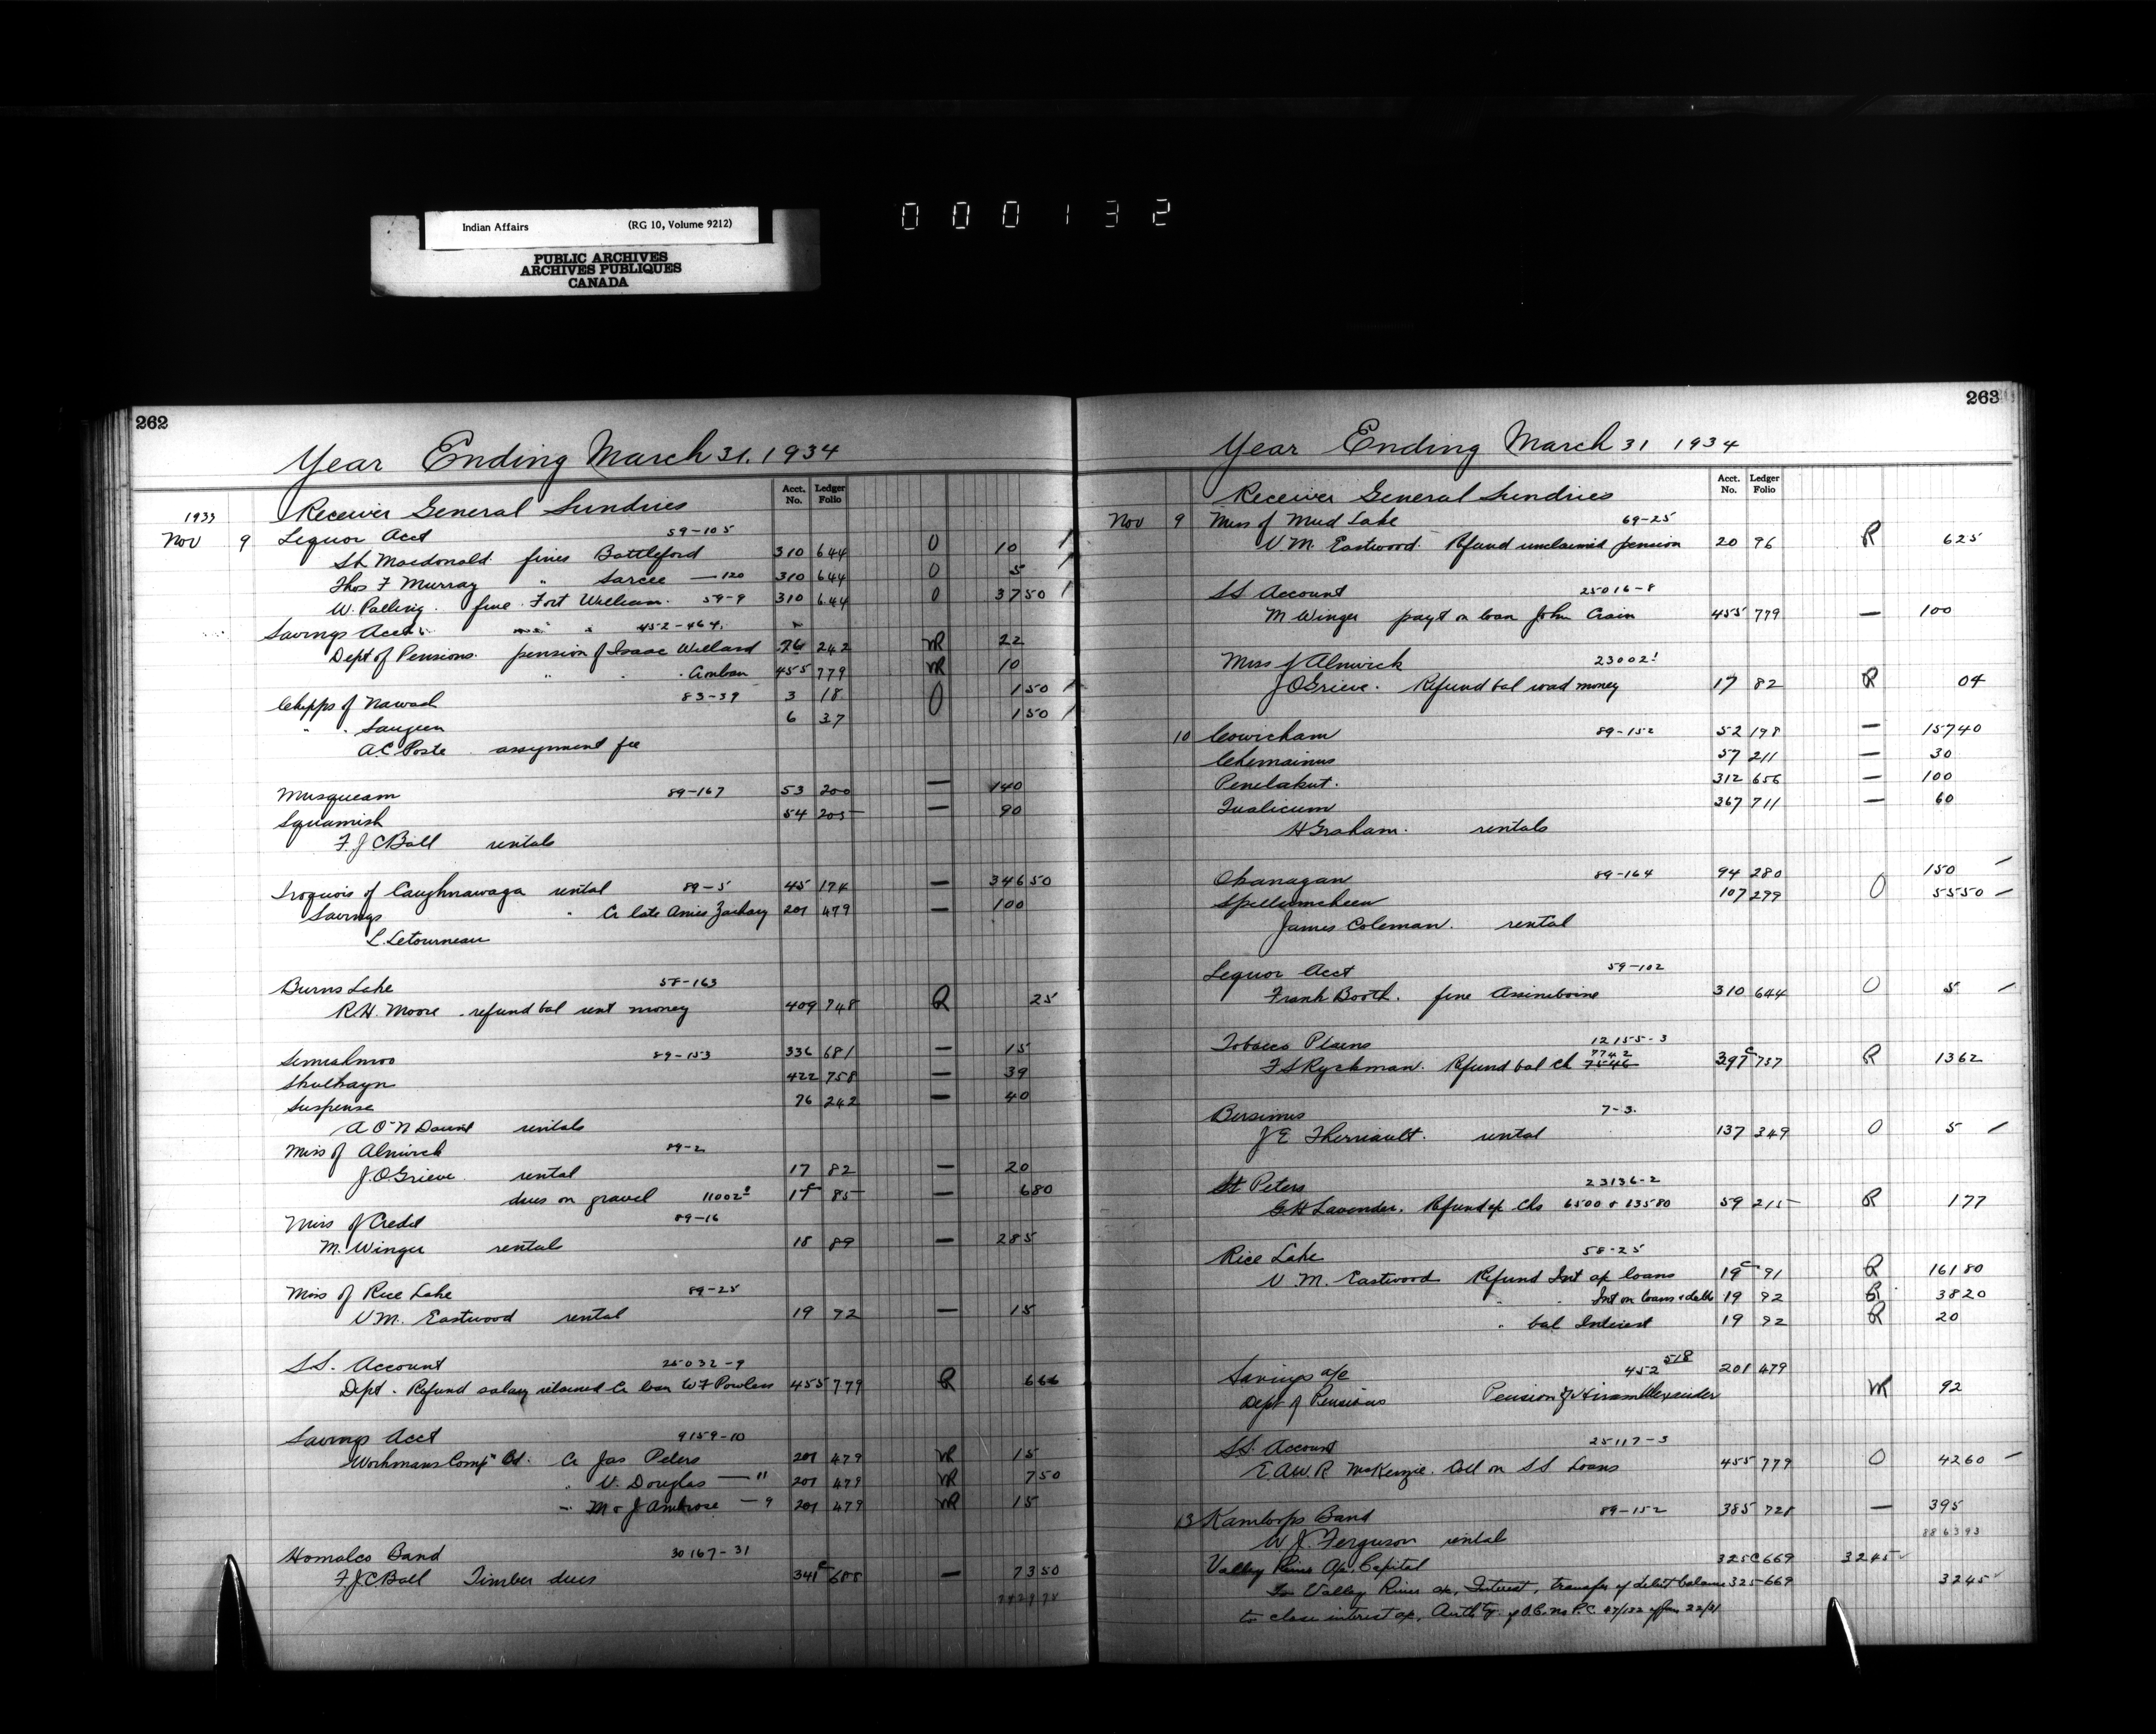 Indian Affairs (RG 10, Volume 9212)
PUBLIC ARCHIVES
ARCHIVES PUBLIQUES
CANADA
000132
262
Year Ending March 31, 1934
Acct. No. Ledger Folio
Receiver General Sundries
1933
Nov 9 Liquor Acct 59-105
Macdonald fines Battleford 310 644 O 10
Thos F Murray " Sarcee — 120 310 644 O 5
W. Palling. fine Fort William. 59-9 310 644 O 37 50
Savings Acct 452-464
Dept of Pensions. pension of Isaac Willard 76 242 NR 22
" 455 779 NR 10
Chipps of Nawash 83-39 3 18 O 1 50
" " Saugeen 6 37 1 50
A.C. Poste assignment fee
Musqueam 89-167 53 200 — 140
Squamish 54 205 — 90
F.J.C. Ball rentals
Iroquois of Caughnawaga rental 89-5 45 174 — 346 50
Savings " Cr late Amies Zachary 201 479 — 100
L. Letourneau
Burns Lake 58-163
R.H. Moore refund bal rent money 409 748 R 25
Semiahmoo 89-153 336 681 — 15
Skulkayn 422 758 — 39
Suspense 76 242 — 40
A O'N Daunt rentals
Miss of Alnwick 89-2
J.O. Grieve rental 17 82 — 20
dues on gravel 11002 17c 85 — 6 80
Miss of Credit 89-16
M. Winger rental 18 89 — 285
Miss of Rice Lake 89-25
V.M. Eastwood rental 19 92 — 15
S.S. Account 25032-9
Dept. Refund salary retained Cr loan W F Powless 455 779 R 6 66
Savings Acct 9159-10
Workmans Comp Bd. Cr Jas Peters 201 479 NR 15
" V. Douglas — 11 201 479 NR 7 50
" M & J Ambrose — 9 201 479 NR 15
Homalco Band 30167-31
F.J.C. Ball Timber dues 341c 688 — 73 50
263
Year Ending March 31 1934
Acct. No. Ledger Folio
Receiver General Sundries
Nov 9 Miss of Mud Lake 69-25
V.M. Eastwood. Refund unclaimed pension 20 96 R 6 25
S.S. Account 25016-8
M Winger payt on loan John Crain 455 779 — 100
Miss of Alnwick 23002
J.O. Grieve. Refund bal road money 17 82 R 04
10 Cowichan 89-152 52 198 — 157 40
Chemainus 57 211 — 30
Penelakut. 312 656 — 100
Qualicum 367 711 — 60
H Graham. rentals
Okanagan 89-164 94 280 1 50
Spellumcheen 107 299 O 55 50
James Coleman. rental
Liquor Acct 59-102
Frank Booth. fine Assiniboine 310 644 O 5
Tobacco Plains 12155-3
7742
F S Ryckman. Refund bal ch 7546 397c 757 R 13 62
Bersimis 7-3.
J E Therriault. rental 137 349 O 5
St Peters 23136-2
G.H. Lavender. Refund of Chs 6500 & 13580 59 215 R 1 77
Rice Lake 58-25
V.M. Eastwood Refund Int a/c loans 19c 91 R 161 80
" " Int on loans & debts 19 92 R 38 20
" bal Interest 19 92 R 20
Savings a/c 452 518 201 479
Dept of Pensions Pension of Hiram Alexander NR 92
S.S. Account 25117-3
E.A.W.R. McKenzie. Coll on S S Loans 455 779 O 42 60
13 Kamloops Band 89-152 385 728 — 395
8863 93
W J. Ferguson rental
Valley River a/c Capital 325C 669 32 45
To Valley River a/c, Interest, transfer of debit balance 325 669 32 45
to close interest a/c, Auth'ty of O.C. no P.C. 47/132 of Jan 22/31